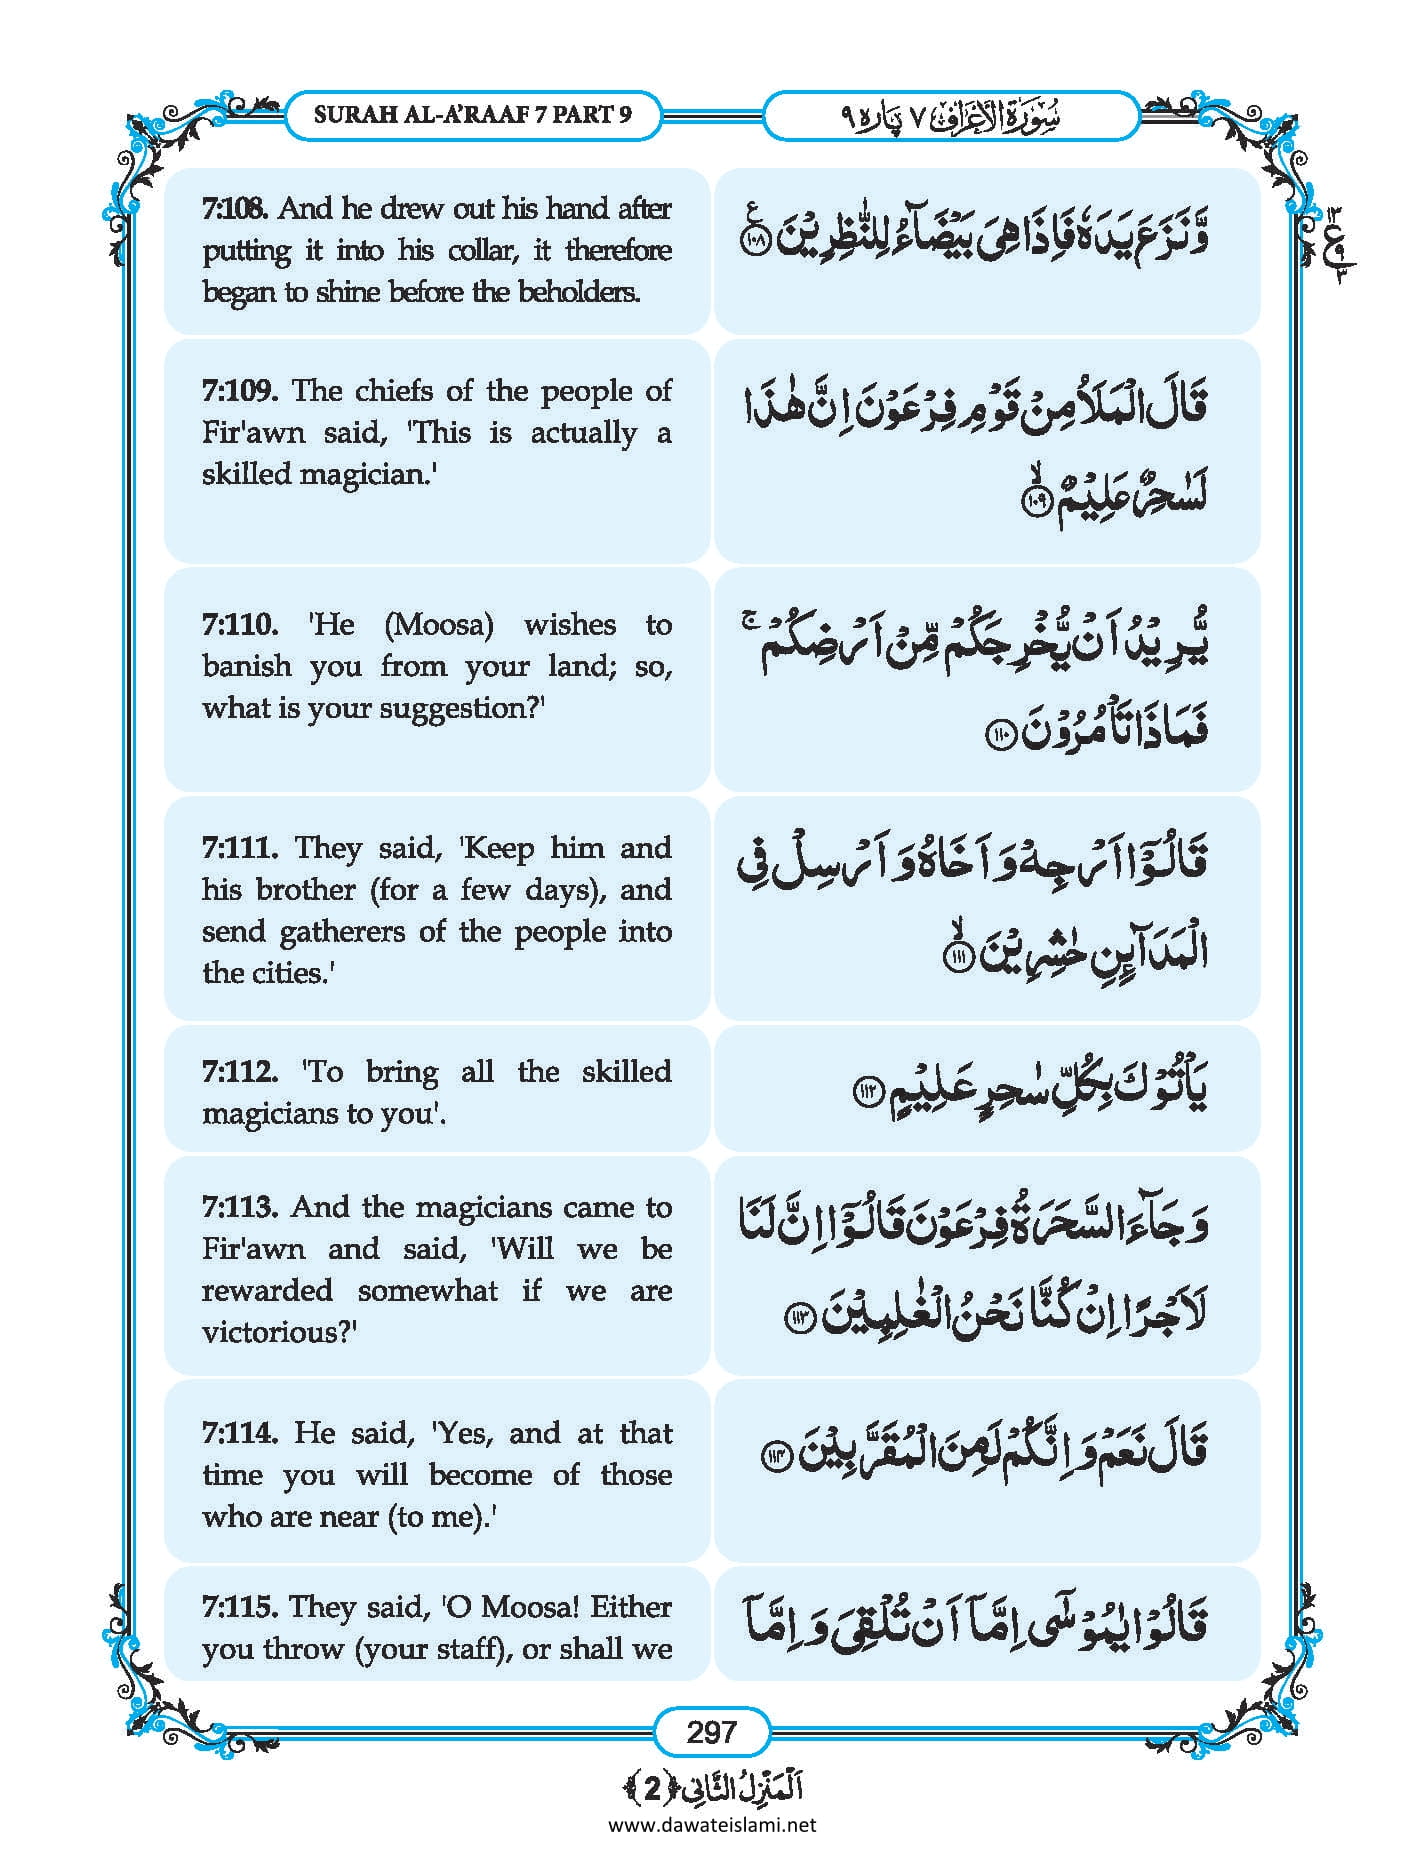 SURAH AL-A'RAAF 7 PART 9
سُوۡرَةُ الۡاَعۡرَاف ٧ پاره ٩
7:108. And he drew out his hand after
putting it into his collar, it therefore
began to shine before the beholders.
وَّنَزَعَ يَدَهٗ فَاِذَا هِىَ بَيۡضَآءُ لِلنّٰظِرِيۡنَ ﴿١٠٨﴾ ع
7:109. The chiefs of the people of
Fir'awn said, 'This is actually a
skilled magician.'
قَالَ الۡمَلَاُ مِنۡ قَوۡمِ فِرۡعَوۡنَ اِنَّ هٰذَا
لَسٰحِرٌ عَلِيۡمٌ ۙ﴿١٠٩﴾
7:110. 'He (Moosa) wishes to
banish you from your land; so,
what is your suggestion?'
يُّرِيۡدُ اَنۡ يُّخۡرِجَكُمۡ مِّنۡ اَرۡضِكُمۡ ۚ
فَمَاذَا تَاۡمُرُوۡنَ ﴿١١٠﴾
7:111. They said, 'Keep him and
his brother (for a few days), and
send gatherers of the people into
the cities.'
قَالُوۡۤا اَرۡجِهۡ وَاَخَاهُ وَاَرۡسِلۡ فِى
الۡمَدَآٮِٕنِ حٰشِرِيۡنَ ۙ﴿١١١﴾
7:112. 'To bring all the skilled
magicians to you'.
يَاۡتُوۡكَ بِكُلِّ سٰحِرٍ عَلِيۡمٍ ﴿١١٢﴾
7:113. And the magicians came to
Fir'awn and said, 'Will we be
rewarded somewhat if we are
victorious?'
وَجَآءَ السَّحَرَةُ فِرۡعَوۡنَ قَالُوۡۤا اِنَّ لَنَا
لَاَجۡرًا اِنۡ كُنَّا نَحۡنُ الۡغٰلِبِيۡنَ ﴿١١٣﴾
7:114. He said, 'Yes, and at that
time you will become of those
who are near (to me).'
قَالَ نَعَمۡ وَاِنَّكُمۡ لَمِنَ الۡمُقَرَّبِيۡنَ ﴿١١٤﴾
7:115. They said, 'O Moosa! Either
you throw (your staff), or shall we
قَالُوۡا يٰمُوۡسٰٓى اِمَّاۤ اَنۡ تُلۡقِىَ وَاِمَّاۤ
297
اَلۡمَنۡزِلُ الثَّانِى ﴿2﴾
www.dawateislami.net